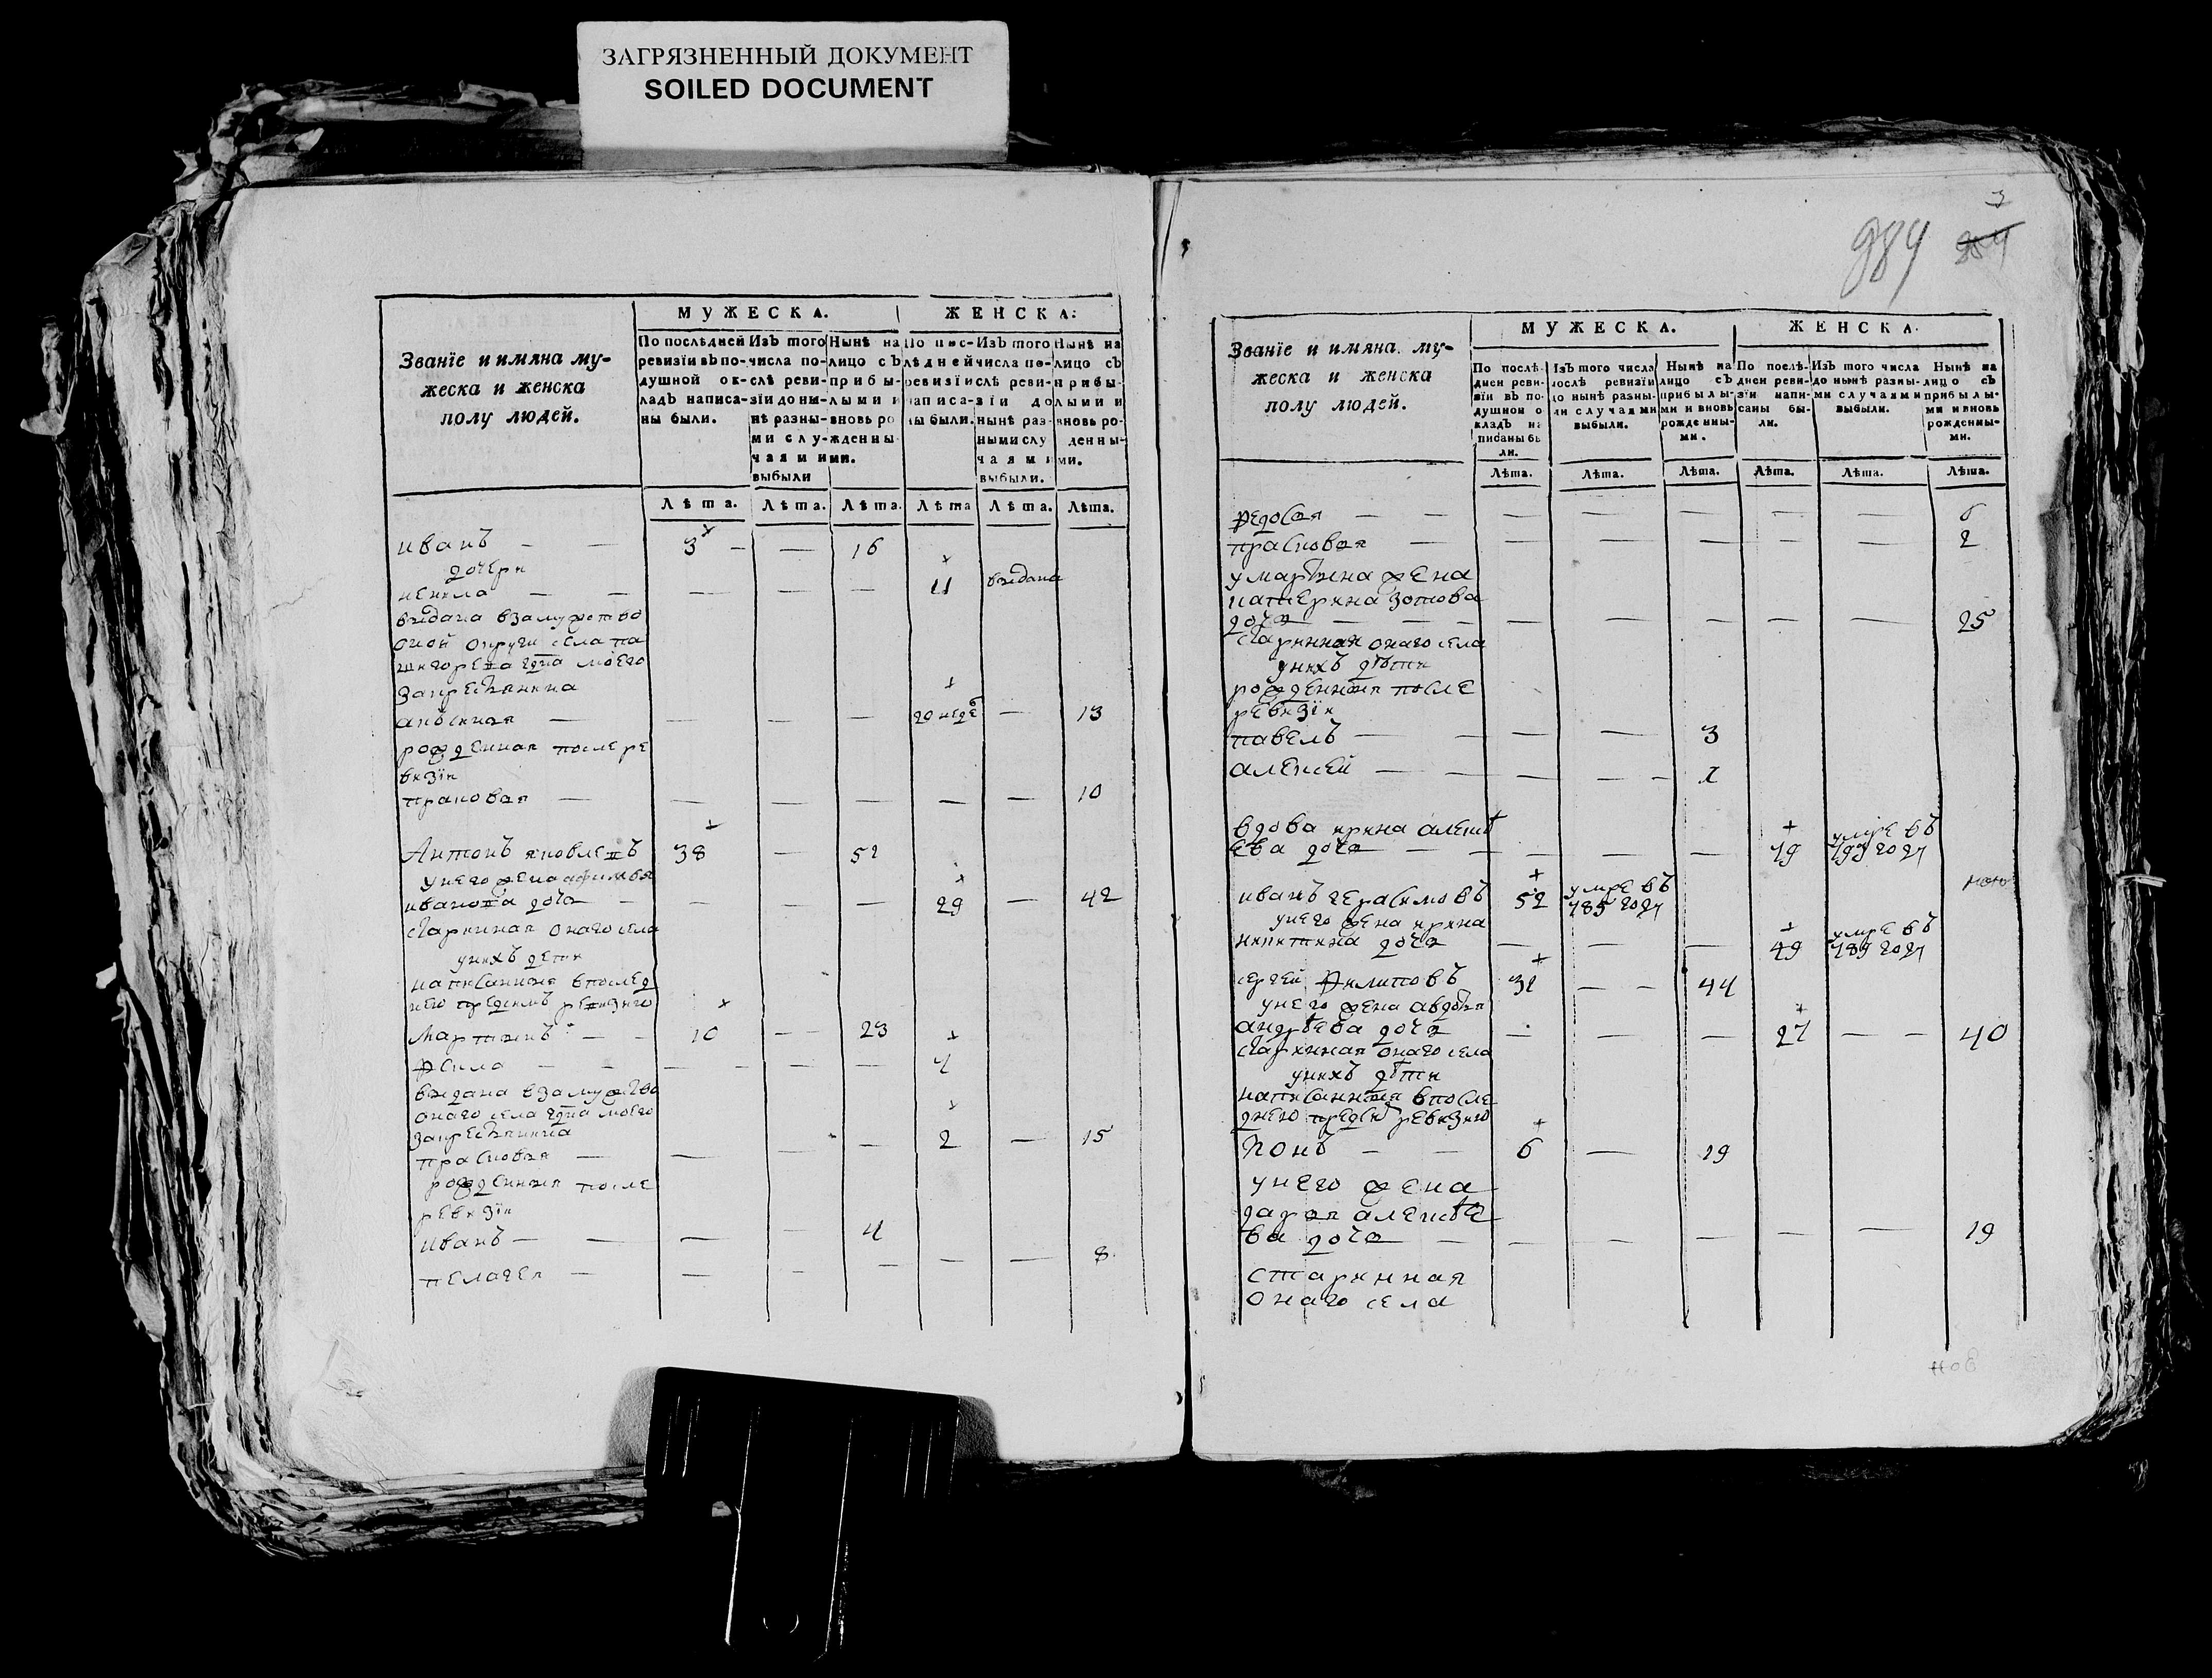 ЗАГРЯЗНЕННЫЙ ДОКУМЕНТ
SOILED DOCUMENT
Званїе и имяна му-
жеска и женска
полу людей.
МУЖЕСКА.
ЖЕНСКА.
По послѣдней ревизїи въ по-душной ок-ладъ написа-ны были.
Изъ того числа по-слѣ реви-зїи до ны-нѣ разны-ми слу-чаями выбыли
Нынѣ на лицо съ прибы-лыми и вновь ро жденны ми.
По пос-лѣдней ревизїи написа-ны были.
Изъ того числа по-слѣ реви-зїи до нынѣ раз-ными слу чаями выбыли.
Нынѣ на лицо съ прибы-лыми и вновь ро-денны-ми.
Лѣта. Лѣта. Лѣта. Лѣта Лѣта. Лѣта.
иванъ — — 3 — — 16
дочери
ненила — — — — — 11 выдана
выдана взамужство
оной округи села па
гдна моего
запрестьянина
аксинья — — — — 20 неде — 13
рожденная после ре
визїи
прасковья — — — — — — 10
Антонъ яковлевъ 38 — 52
унего жена афимья
иванова дочь — — — — 29 — 42
старинная онаго села
унихъ дети
написанныя впослед
нею предсимъ ревизию
Мартынъ — — 10 — — 23
Фекла — — — — — — 4
выдана взамужство
онаго села гдна моего
закрестьянина
прасковья — — — — 2 — 15
рожденныя после
ревизїи
иванъ — — — — 4
пелагея — — — — — — 8
984 984
Званїе и имяна му-
жеска и женска
полу людей.
МУЖЕСКА.
ЖЕНСКА.
По послѣ-днеи реви-зїи въ по-душной о кладъ на писаны бы ли.
Изъ того числа послѣ ревизїи до нынѣ разны-ми случаями выбыли.
Нынѣ на лицо съ прибылы-ми и вновь рожденны-ми.
По послѣ-днеи реви-зїи напи-саны бы-ли.
Изъ того числа до нынѣ разны-ми случаями выбыли.
Нынѣ на лицо съ прибылы-ми и вновь рожденны-ми.
Лѣта. Лѣта. Лѣта. Лѣта. Лѣта. Лѣта.
Федосья — — — — — — — 6
прасковья — — — — — — 2
умартына жена
катерина зотова
дочь — — — — — — — 25
старинная онаго села
унихъ дѣти
рожденныя после
ревизїи
павелъ — — — — 3
алексей — — — — —
вдова ирина алексѣ
ева дочь — — — — — 79 умре въ 793 году
иванъ герасимовъ 52 умре въ 785 году
унего жена ирина
никитина дочь — — — 49 умре въ 789 году
сергей Филиповъ 31 — — 44
унего жена авдотья
андрѣева дочь — — — 27 — — 40
старинная онаго села
унихъ дѣти
написанныя впосле
днею предсим ревизию
конъ — — 6 — 19
унего жена
дарья алексѣе
ва дочь — — — — — — 19
старинная
онаго села